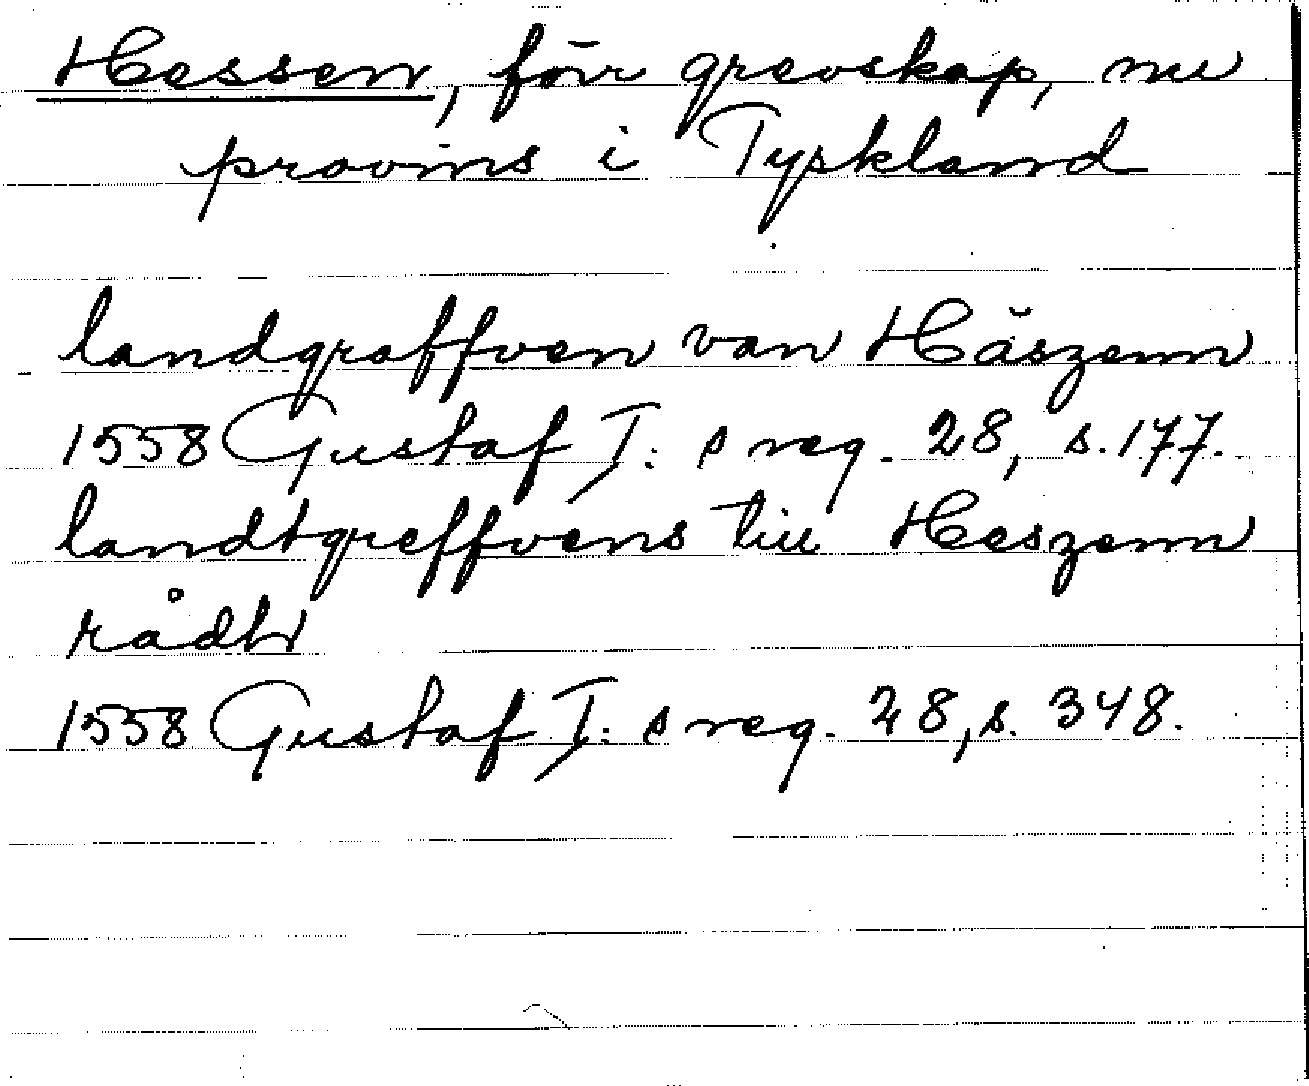 Hessen, förr grevskap, nu
provins i Tyskland
landgraffven van Häszenn
1558 Gustaf I:s reg. 28, s. 177.
landtgreffvens till Heszenn
rådh
1558 Gustaf I:s reg. 28, s. 348.